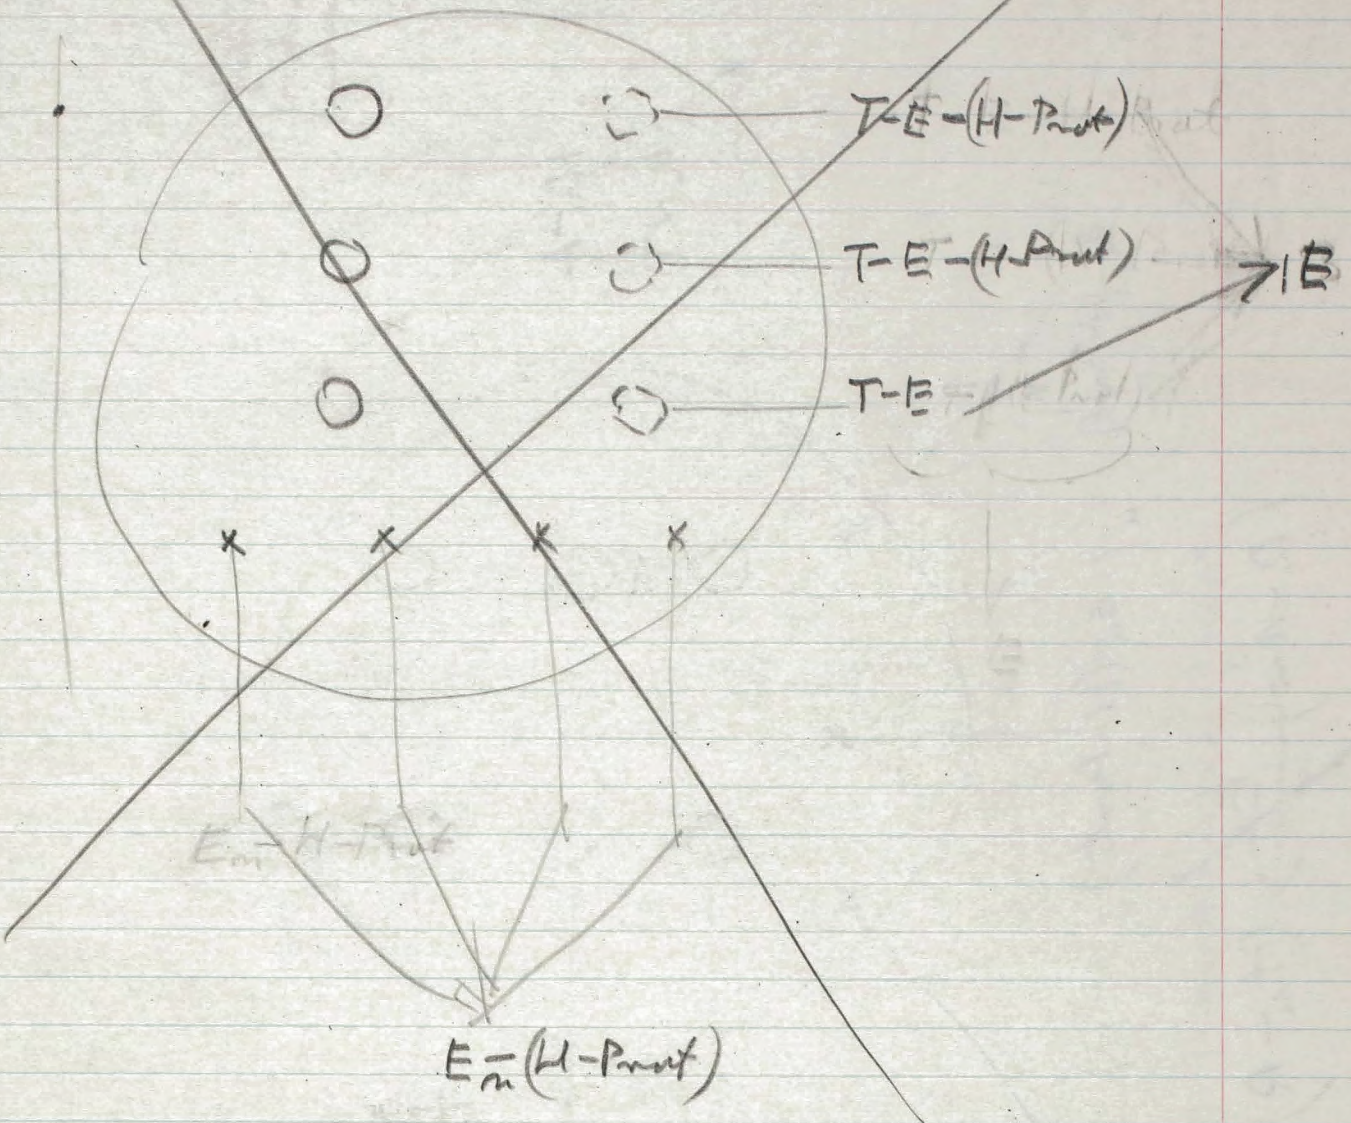 T-E-(H-Prot)
T-E-(H-Prot)
E
T-E
Em-H-Prot
Em-(H-Prot)